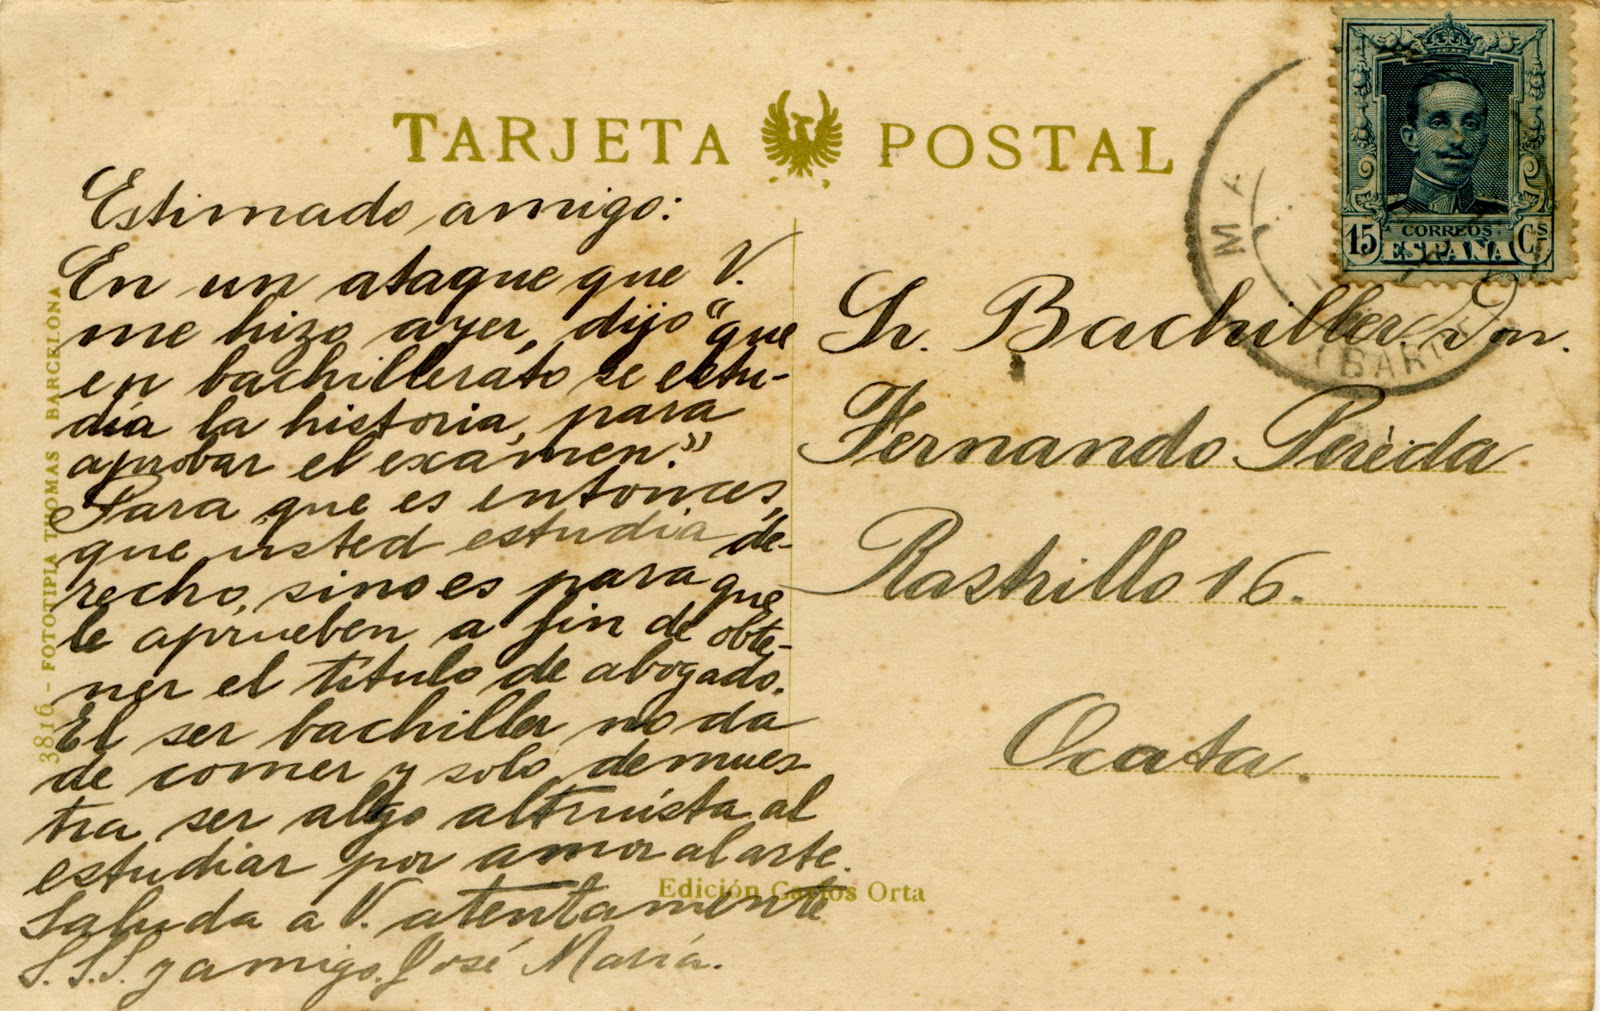 TARJETA POSTAL
Estimado amigo:
En un ataque que V.
me hizo ayer, dijo "que
en bachillerato se estu-
dia la historia, para
aprobar el exámen."
Para que es entonces,
que usted estudia de-
recho, sino es para que
le aprueben a fin de obte-
ner el título de abogado.
El ser bachiller no da
de comer y solo demues-
tra ser algo altruista al
estudiar por amor al arte.
Saluda a V. atentamente
S.S.S. y amigo. José María.
3816 - FOTOTIPIA THOMAS BARCELONA
Edición Carlos Orta
15 CORREOS Cs
ESPAÑA
MA
(BAR
Sr. Bachiller Don.
Fernando Perèda
Rastrillo 16.
Ocata.